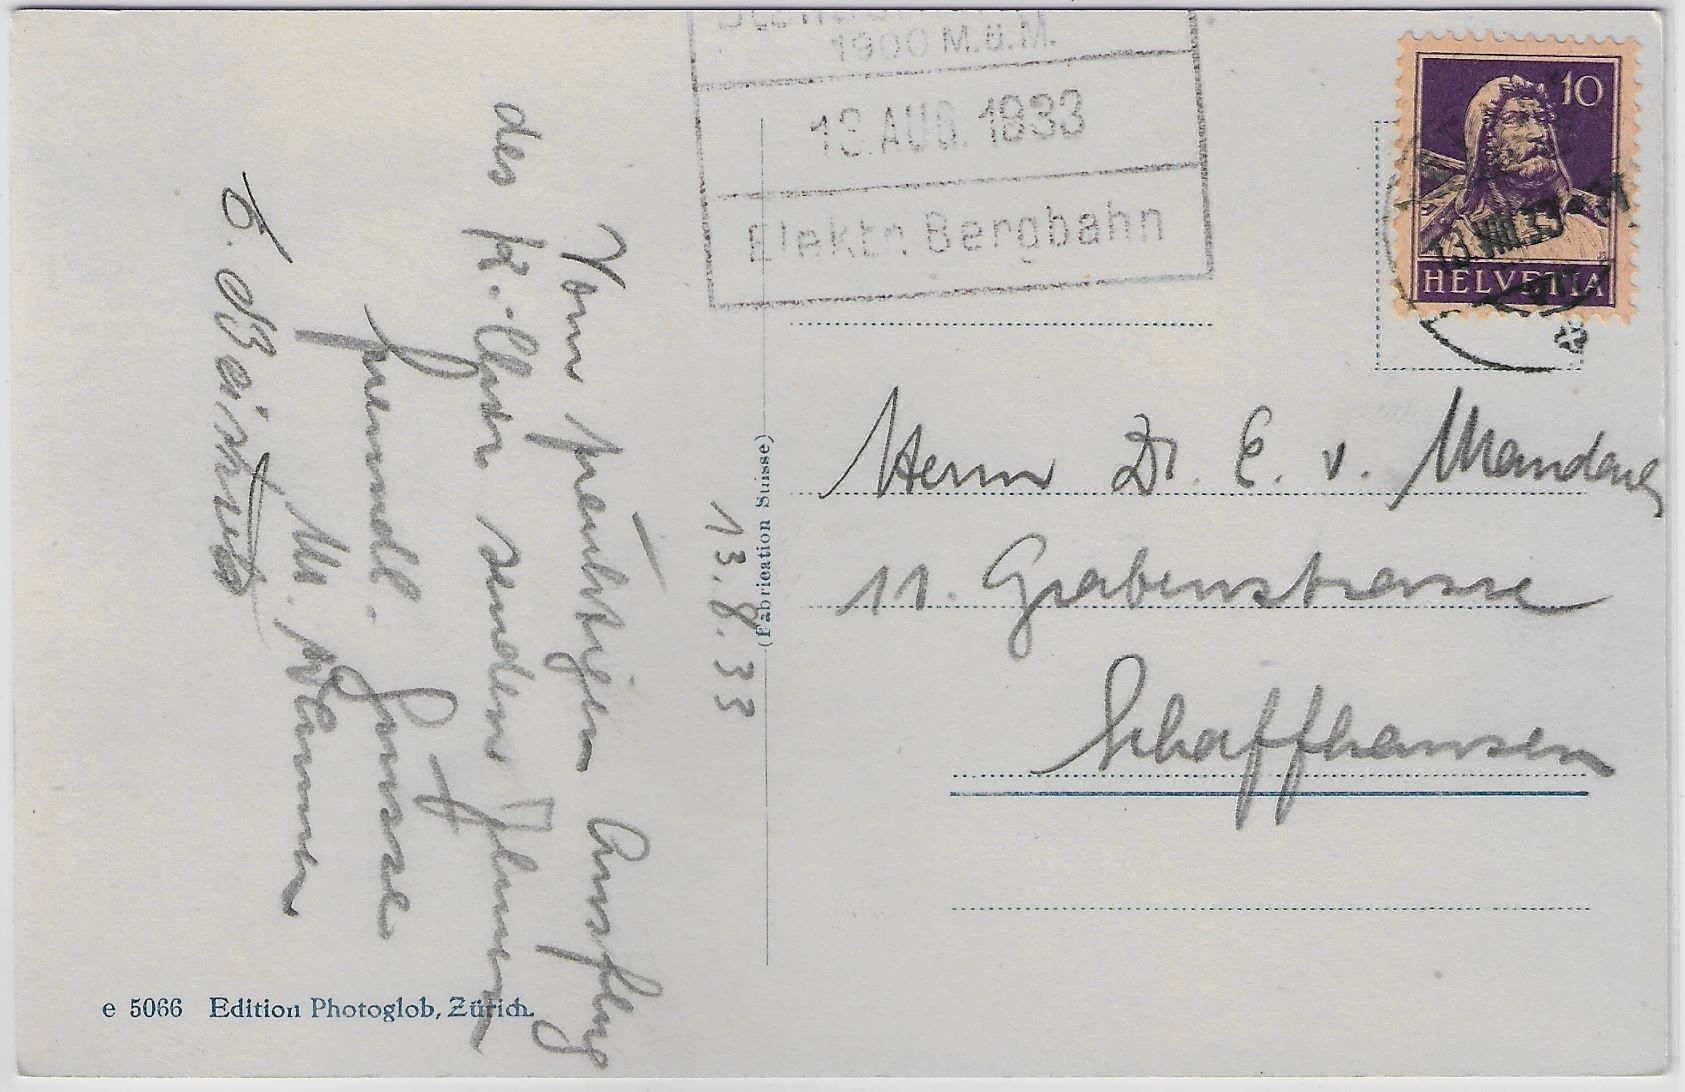 1900 M.ü.M.
13.AUG.1933
Elektr. Bergbahn
10
13.VIII.33
HELVETIA
Herrn Dr. E. v. Mandach
11. Grabenstrasse
Schaffhausen
(Fabrication Suisse)
13.8.33
Vom prächtigen Ausflug
der senden Ihnen
freundl. Grüsse
e 5066 Edition Photoglob, Zürich.